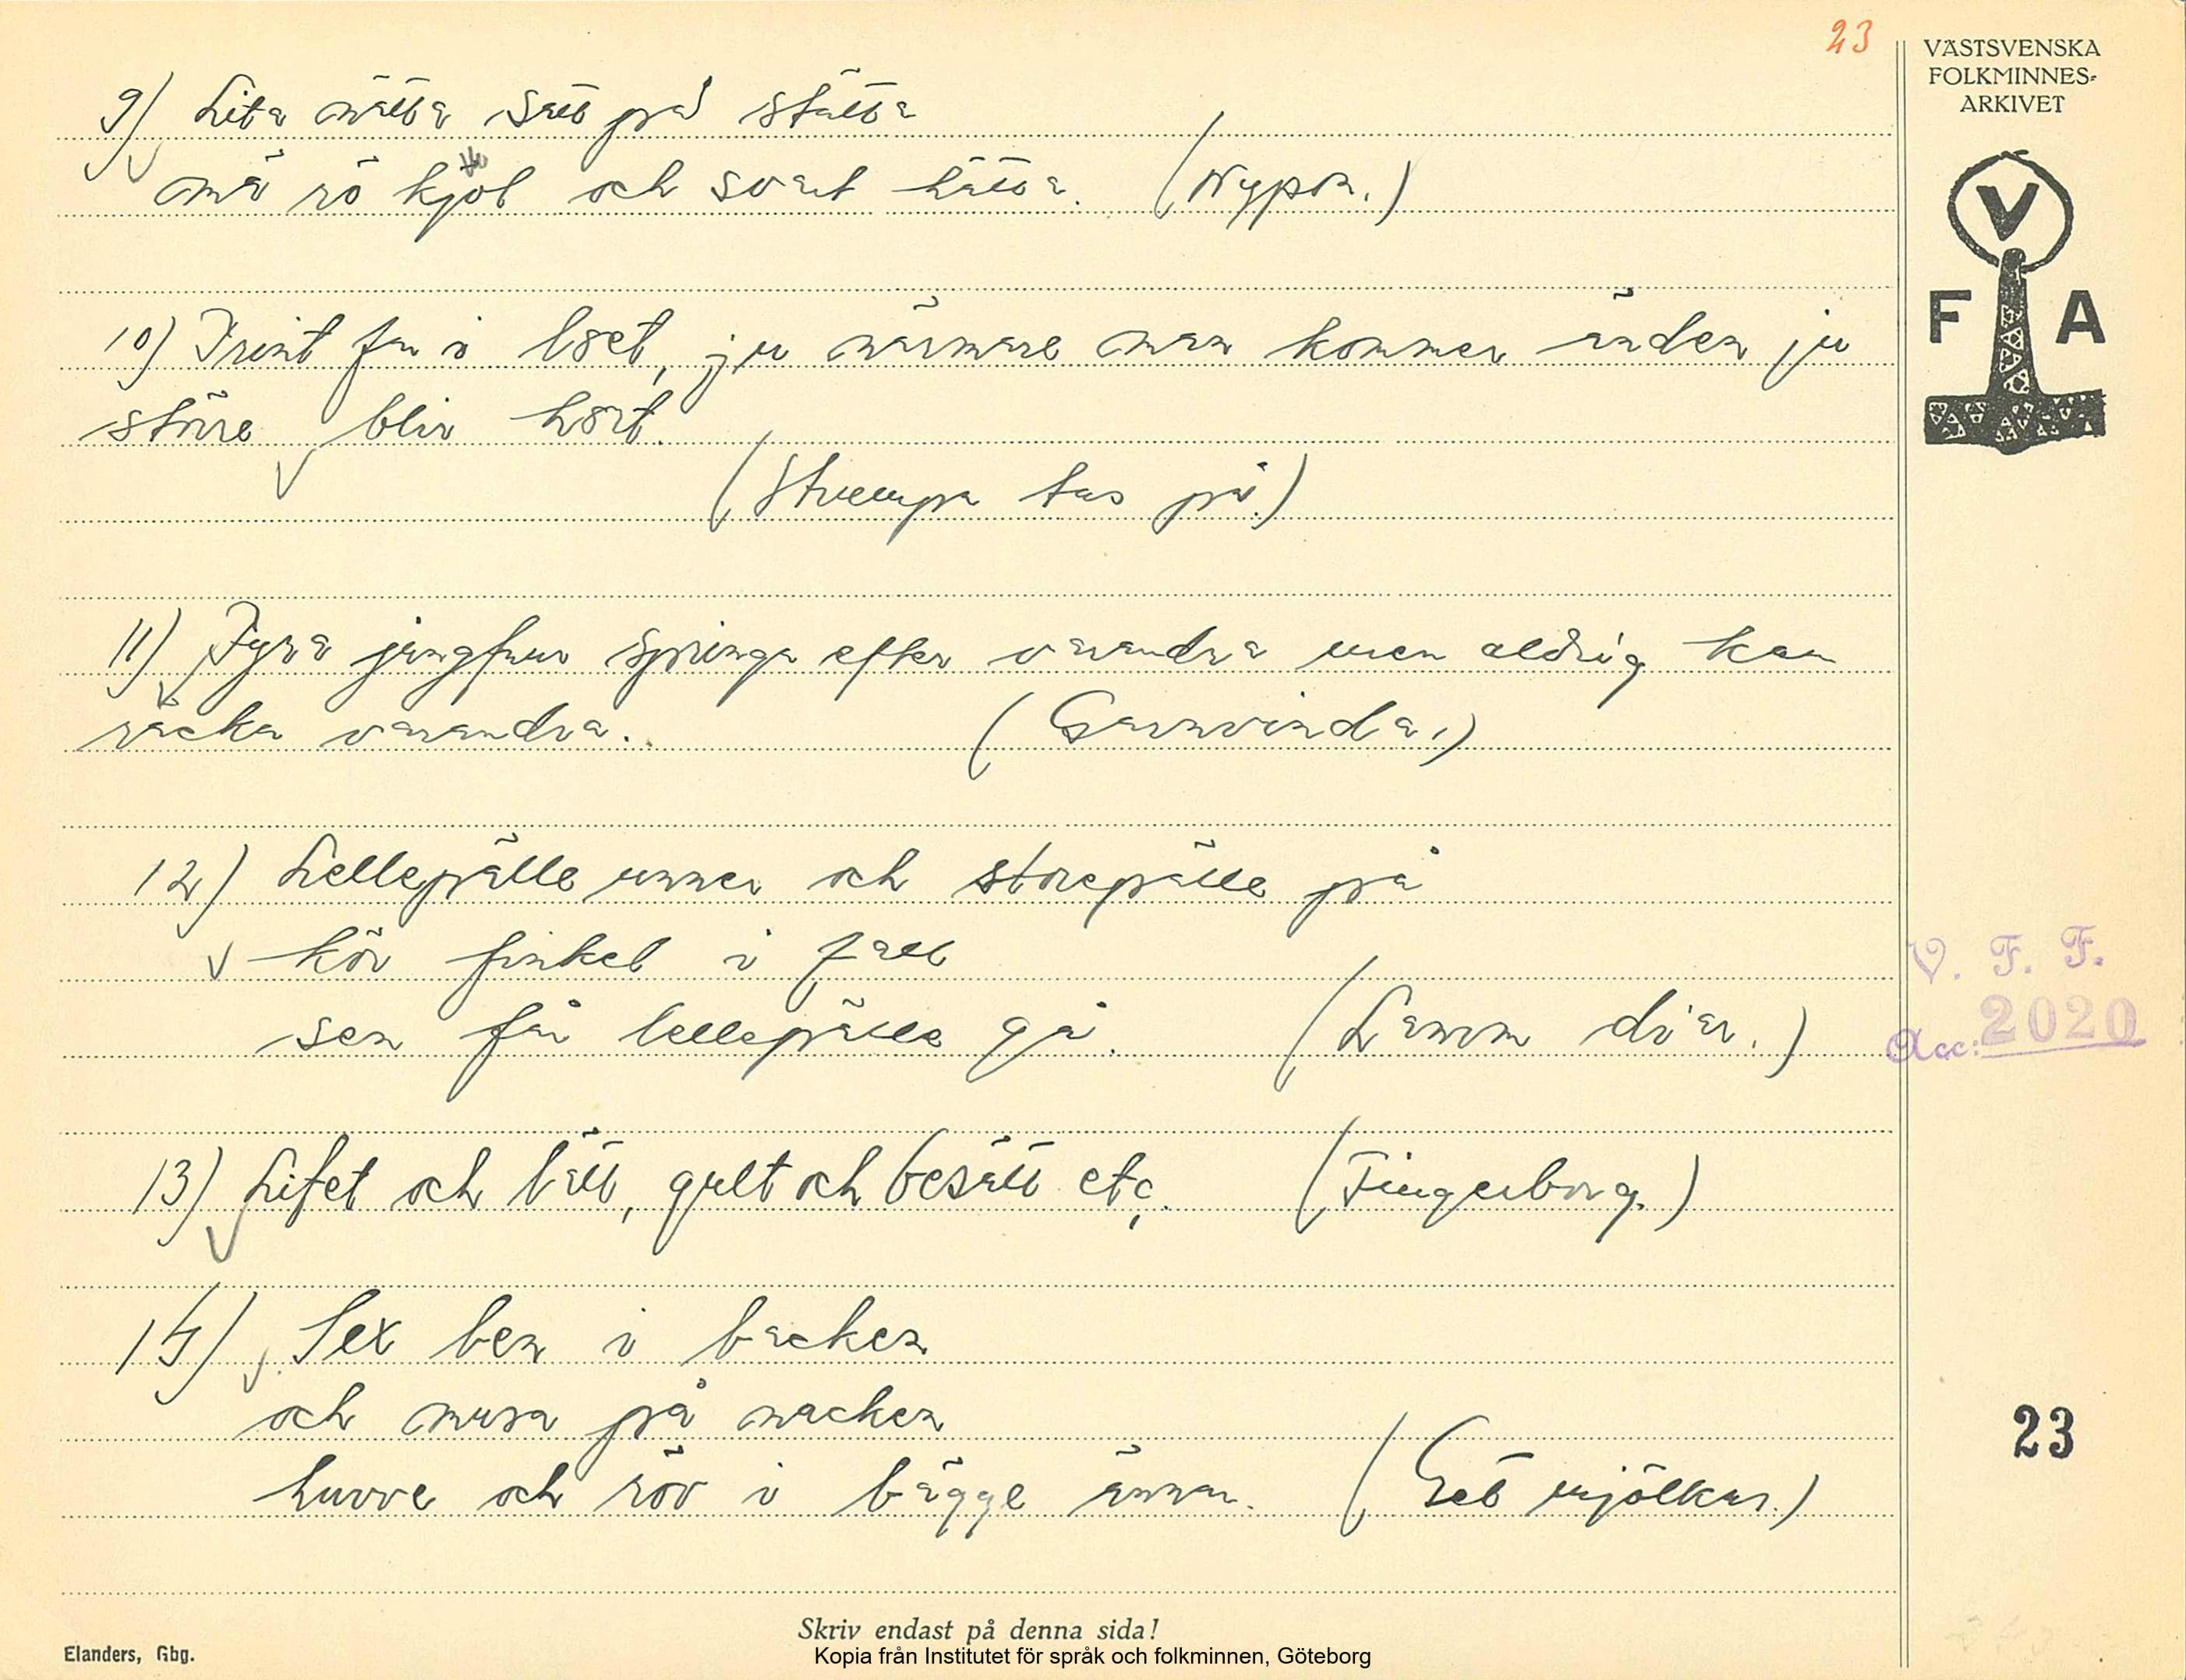 23
VÄSTSVENSKA
FOLKMINNES-
ARKIVET
V
F A
9) Lita nätta satt på stätta
mä rö kjol och svart hätta. (Nypon.)
10) Trint fu i lået, ju närmare man kommer änden ju
större blir hårt.
(Strumpa tas på.)
11) Fyra jungfrur springa efter varandra men aldrig kan
räcka varandra. (Garnvinda.)
12) Lellepälle unner och storepälle på
kör finkel i fatt
sen får lellepälle gå. (Lamm diar.)
13) Litet och lätt, gult och besätt etc. (Fingerborg.)
14) Sex ben i backen
och mura på nacken
huvve och röv i bägge ännar. (Get mjölkas.)
V. F. F.
Acc: 2020
23
Skriv endast på denna sida!
Elanders, Gbg.
Kopia från Institutet för språk och folkminnen, Göteborg